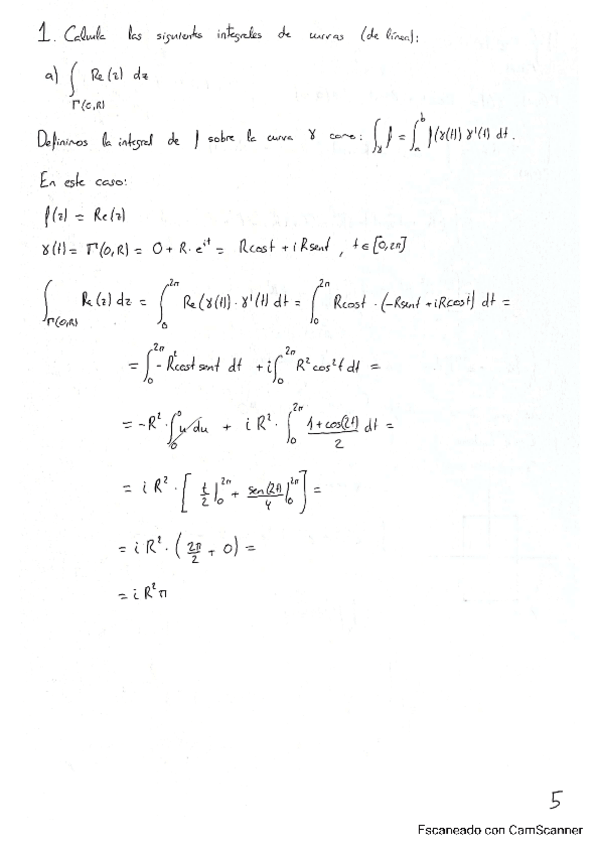 1. Calcula las siguientes integrales de curvas (de línea):
a) ∫_{Γ(0,R)} Re(z) dz
Definimos la integral de f sobre la curva γ como: ∫_γ f = ∫_a^b f(γ(t)) γ'(t) dt.
En este caso:
f(z) = Re(z)
γ(t) = Γ(0,R) = 0 + R·e^{it} = Rcost + i Rsent , t∈[0,2π]
∫_{Γ(0,R)} Re(z) dz = ∫_0^{2π} Re(γ(t))·γ'(t) dt = ∫_0^{2π} Rcost · (-Rsent + iRcost) dt =
= ∫_0^{2π} -R²cost sent dt + i∫_0^{2π} R²cos²t dt =
= -R²·∫_0^0 u du + i R²· ∫_0^{2π} (1+cos(2t))/2 dt =
= i R² · [ t/2 |_0^{2π} + sen(2t)/4 |_0^{2π} ] =
= i R² · ( 2π/2 + 0) =
= i R² π
5
Escaneado con CamScanner